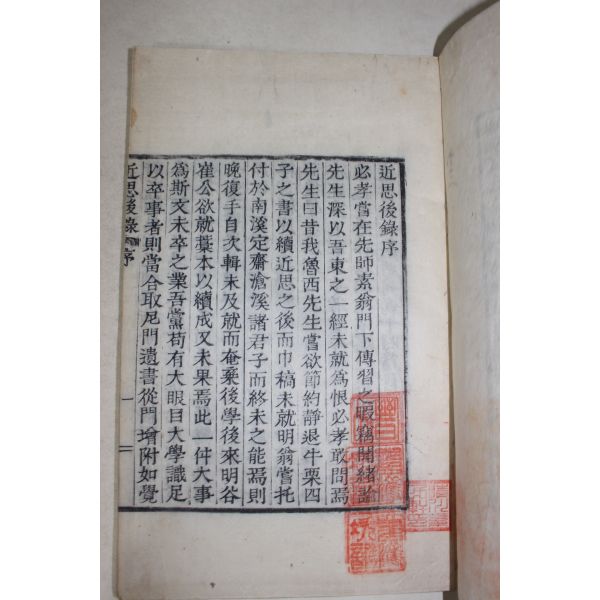 近思後錄序
必孝嘗在先師素翁門下傳習之暇竊聞緒論
先生深以吾東之一經未就爲恨必孝敢問焉
先生曰昔我魯西先生嘗欲節約靜退牛栗四
子之書以續近思之後而巾稿未就明翁嘗托
付於南溪定齋滄溪諸君子而終未之能焉則
晚復手自次輯未及就而奄棄後學後來明谷
崔公欲就藁本以續成又未果焉此一件大事
爲斯文未卒之業吾黨苟有大眼目大學識足
以卒事者則當合取尼門遺書從門增附如覺
近思後錄 序 一